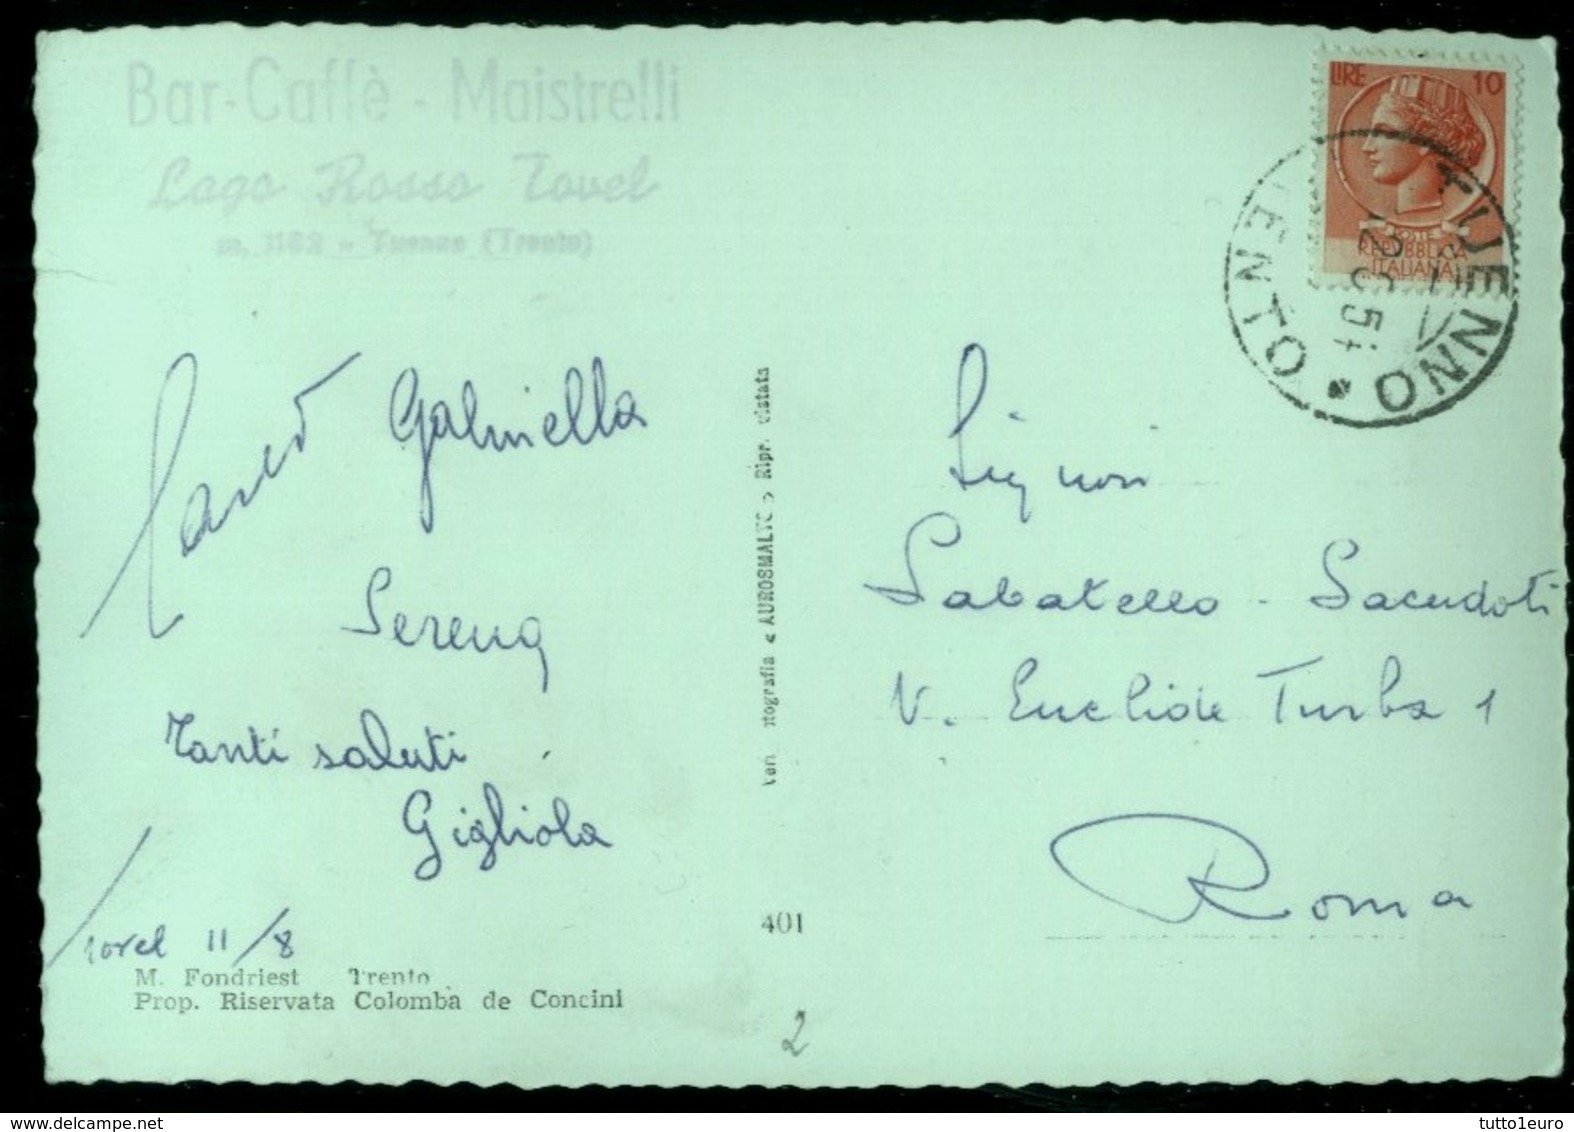 Bar-Caffè - Maistrelli
Lago Rosso Tovel
m. 1162 - Tuenno (Trento)
LIRE 10
POSTE
REPUBBLICA
ITALIANA
TUENNO
Gabriella
Serena
Tanti saluti
Gigliola
Tovel 11/8
M. Fondriest Trento
Prop. Riservata Colomba de Concini
« AUROSMALTO » Ripr. vietata
401
2
Signori
Sabatello - Sacerdoti
V. Euclide Turba 1
Roma
tutto1euro